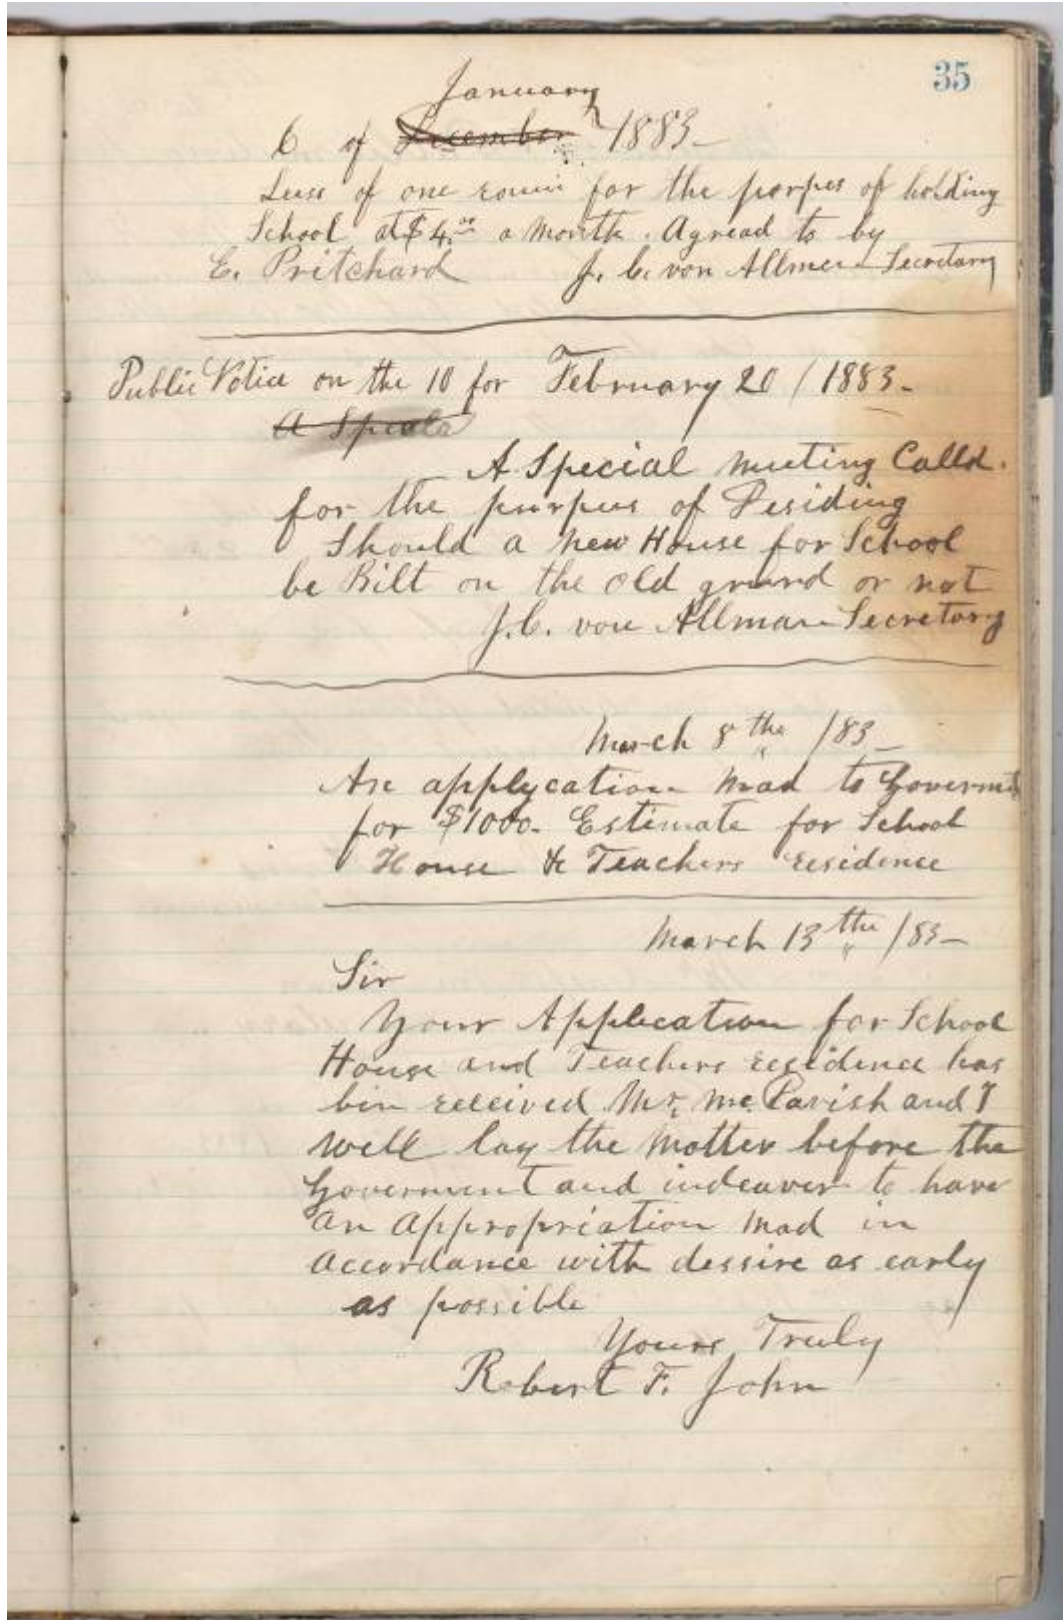 35
January
6 of December 1883-
Leass of one roum for the porpes of holding
School at $4.00 a Month. Agread to by
E. Pritchard J. C. von Allmen Secretary
Public Notice on the 10 for February 20 / 1883-
A Speala
A Special meeting Calld.
for the purpus of Desiding
Should a new House for School
be Bilt on the old grund or not
J.C. von Allman Secretary
March 8th /83-
An applycation mad to Goverment
for $1000- Estimate for School
House & Teachers residence
March 13the /83-
Sir
Your Application for School
House and Teachers residence has
bin received Mr. Mc. Pavish and I
well lay the Matter before the
Goverment and indeaver to have
an Appropriation Mad in
accordance with dessire as early
as possible
Yours Truly
Robert F. John